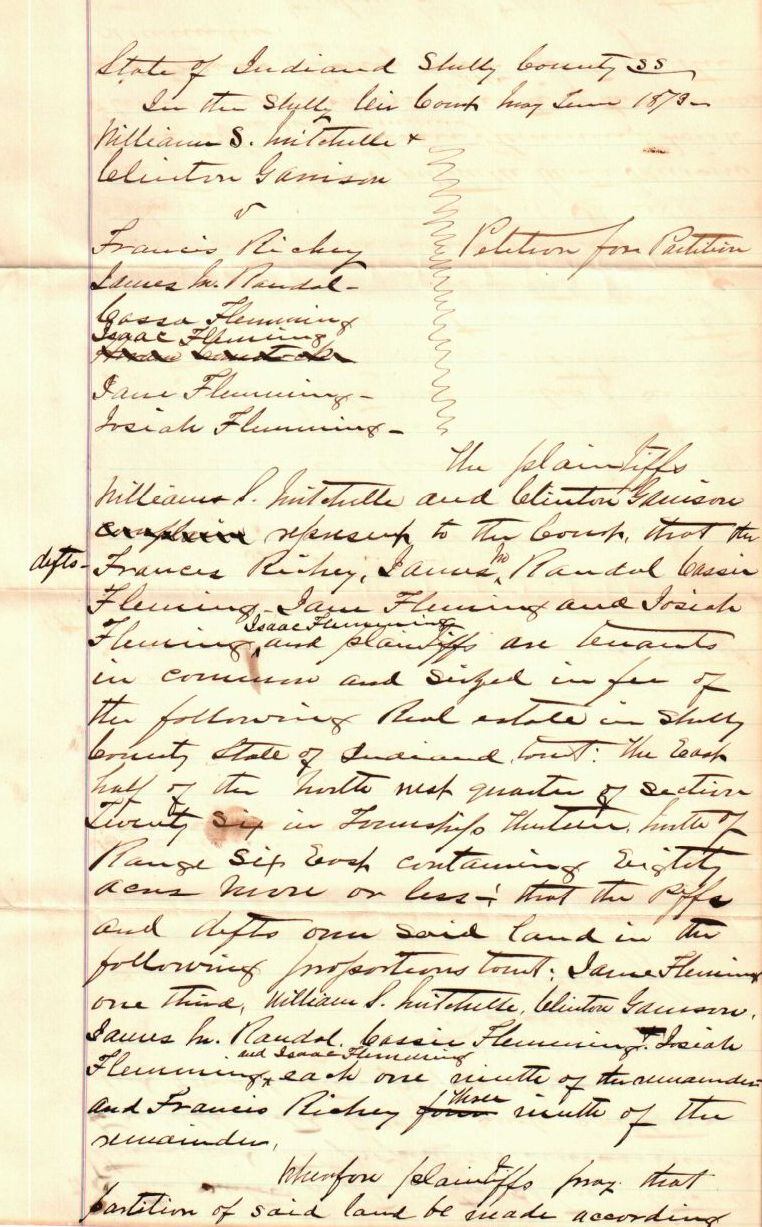 State of Indiana Shelby County SS
In the Shelby Cir Court May Term 1873
William S. Mitchelle &
Clinton Garrison
v
Francis Richey Petition for Partition
James M. Randol -
Cassa Flemming
Isaac Flemming
Jane Flemming -
Josiah Flemming -
The plaintiffs
William S. Mitchelle and Clinton Garrison
complain represent to the Court, that the
defts - Frances Richey, James M. Randol Cassie
Fleming - Jane Fleming and Josiah
Isaac Flemming
Fleming, and plaintiffs are tenants
in common and seized in fee of
the following Real estate in Shelby
County State of Indiana, towit: the East
half of the North west quarter of section
Twenty Six in Township Thirteen, North of
Range Six East containing Eighty
acres more or less -; that the Plffs
and defts own said land in the
following proportions towit; Jane Fleming
one third, William S. Mitchelle, Clinton Garrison,
James M. Randol. Cassie Flemming & Josiah
and Isaac Flemming
Flemming, each one ninth of the remainder
three
and Francis Richey four ninth of the
remainder,
Wherefore plaintiffs pray that
partition of said land be made according